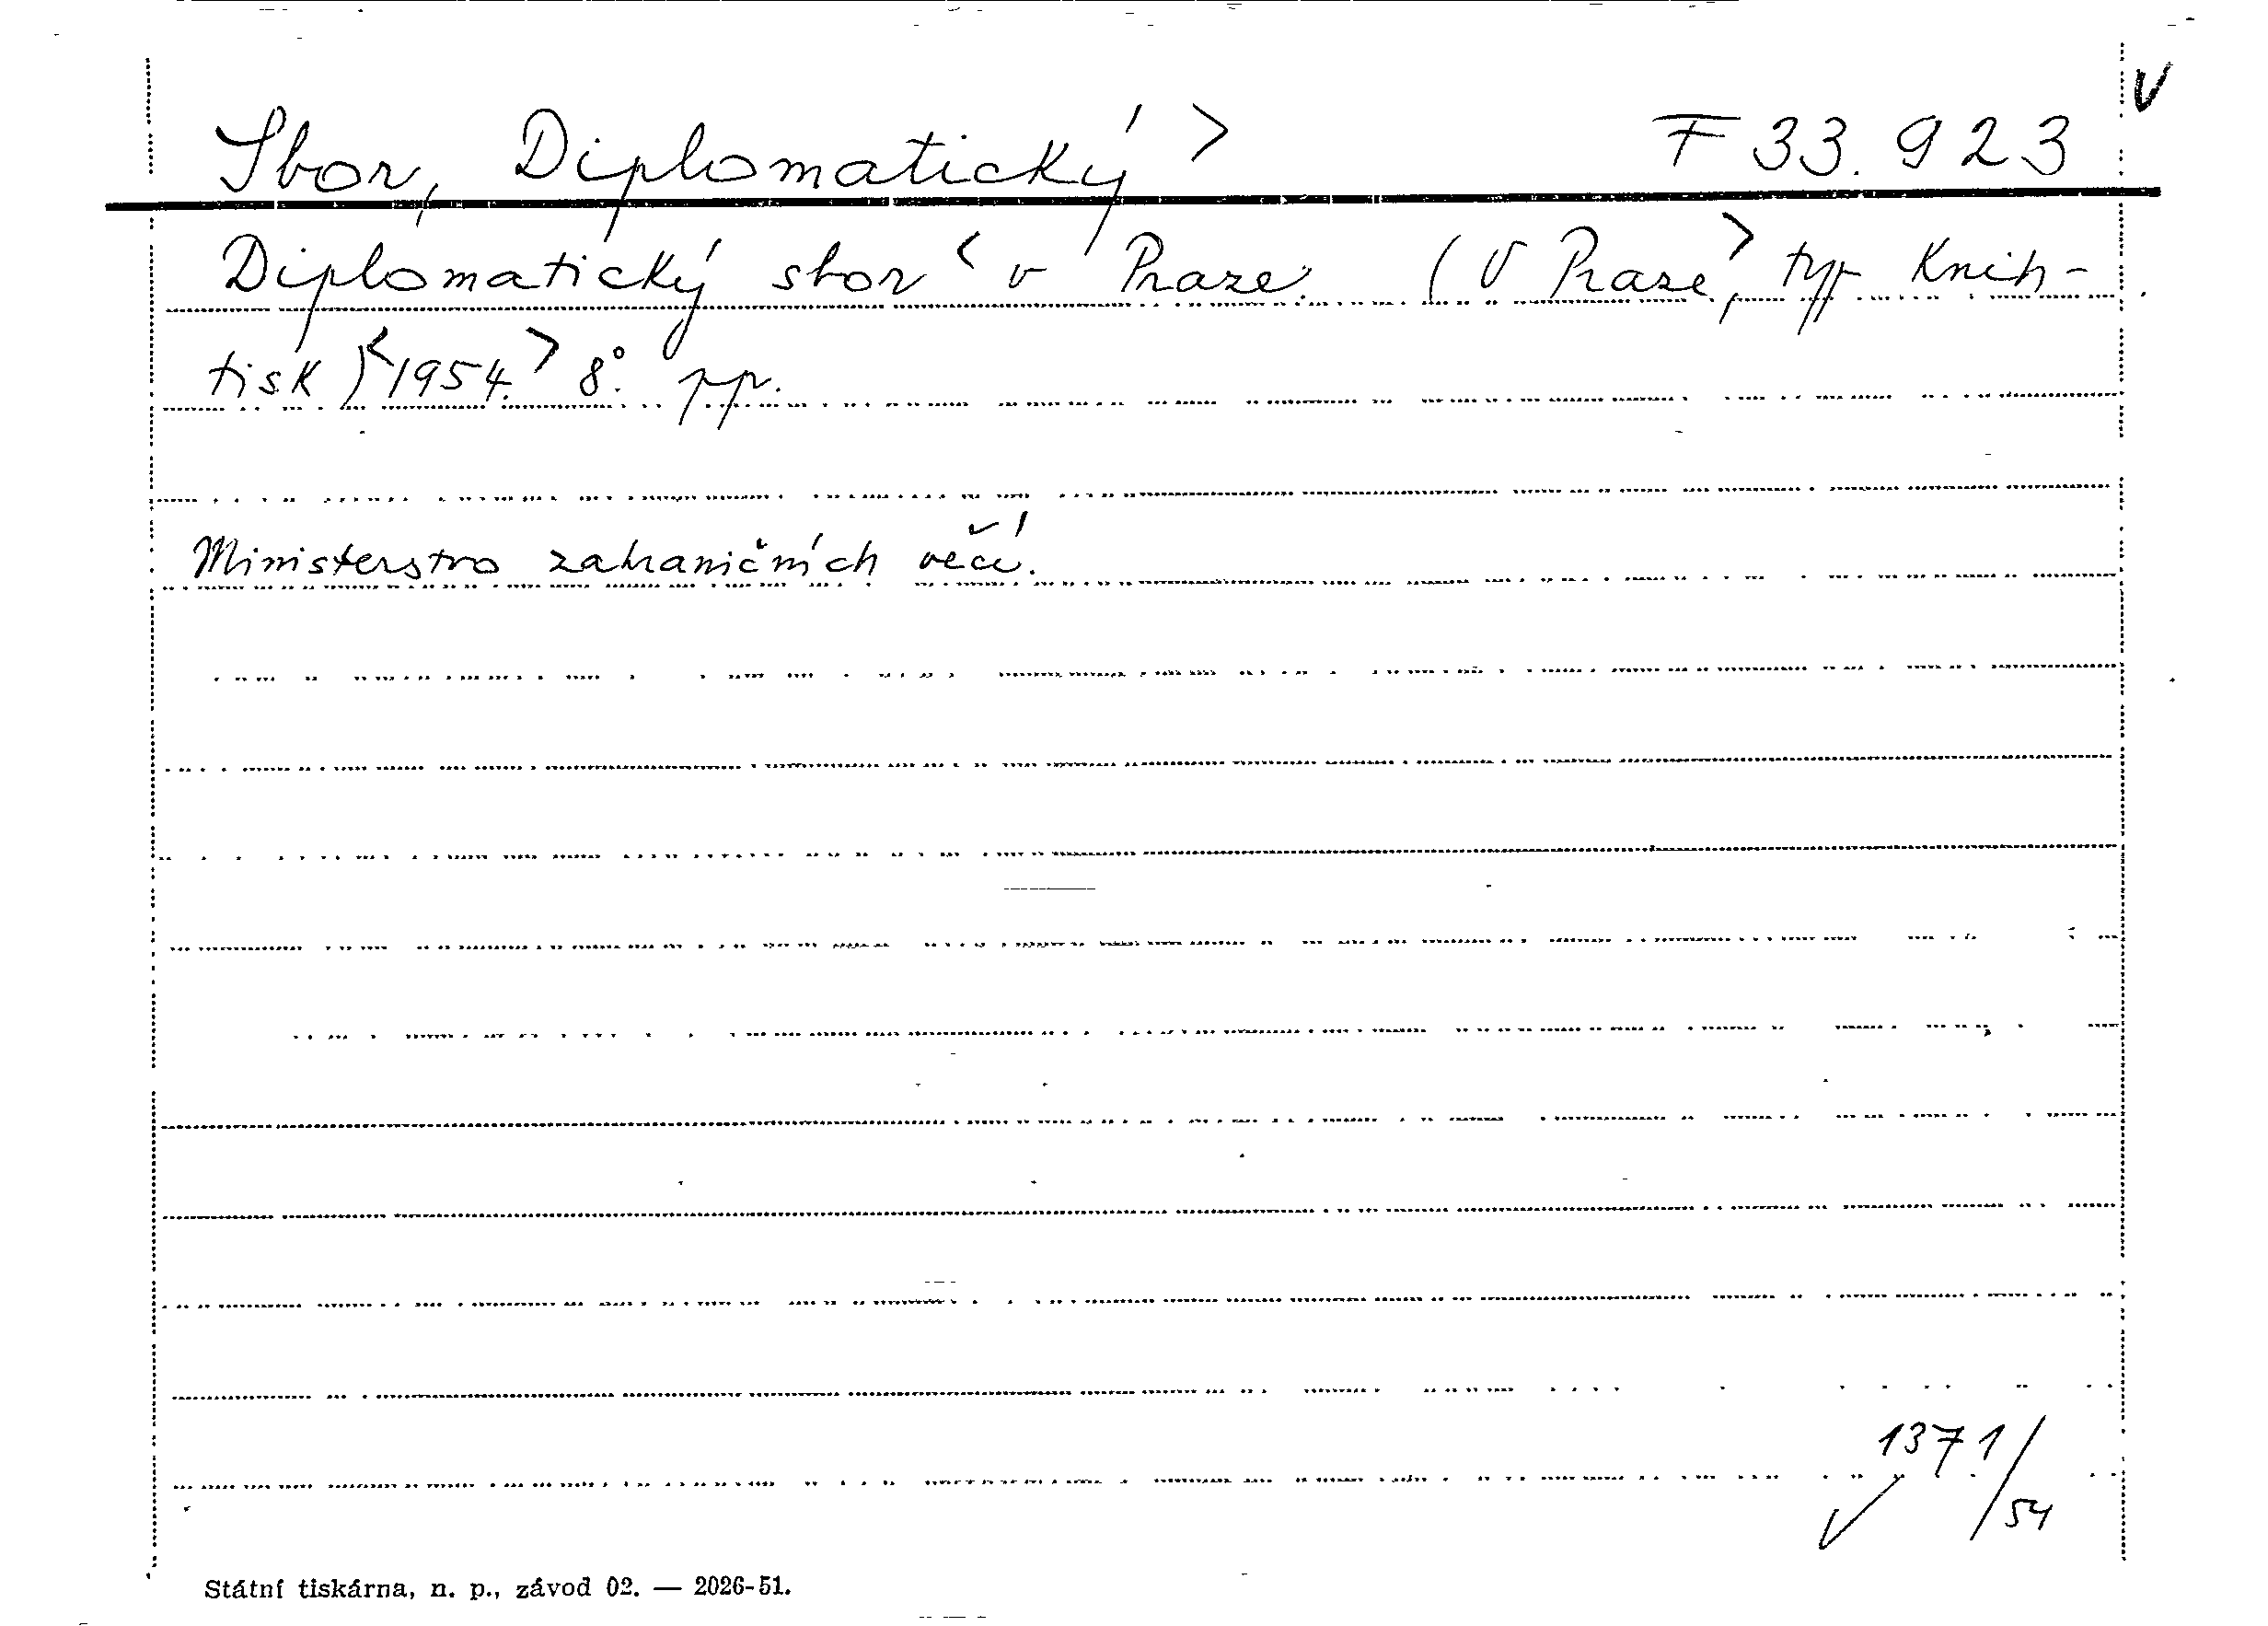 Sbor, Diplomatický > F 33.923 V
Diplomatický sbor < v Praze. (V Praze, > typ Knih-
tisk) < 1954. > 8°. pp.
Ministerstvo zahraničních věcí.
1371/54
Státní tiskárna, n. p., závod 02. — 2026-51.